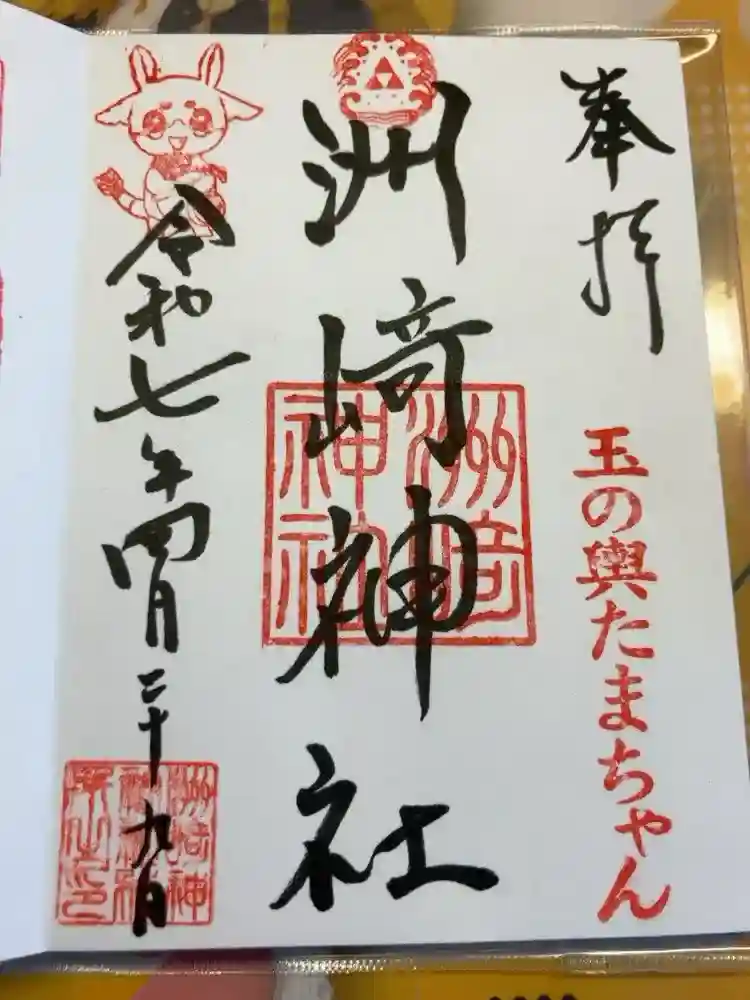 奉拝
玉の輿たまちゃん
洲崎神社
洲崎
神社
令和七年四月二十九日
洲崎神